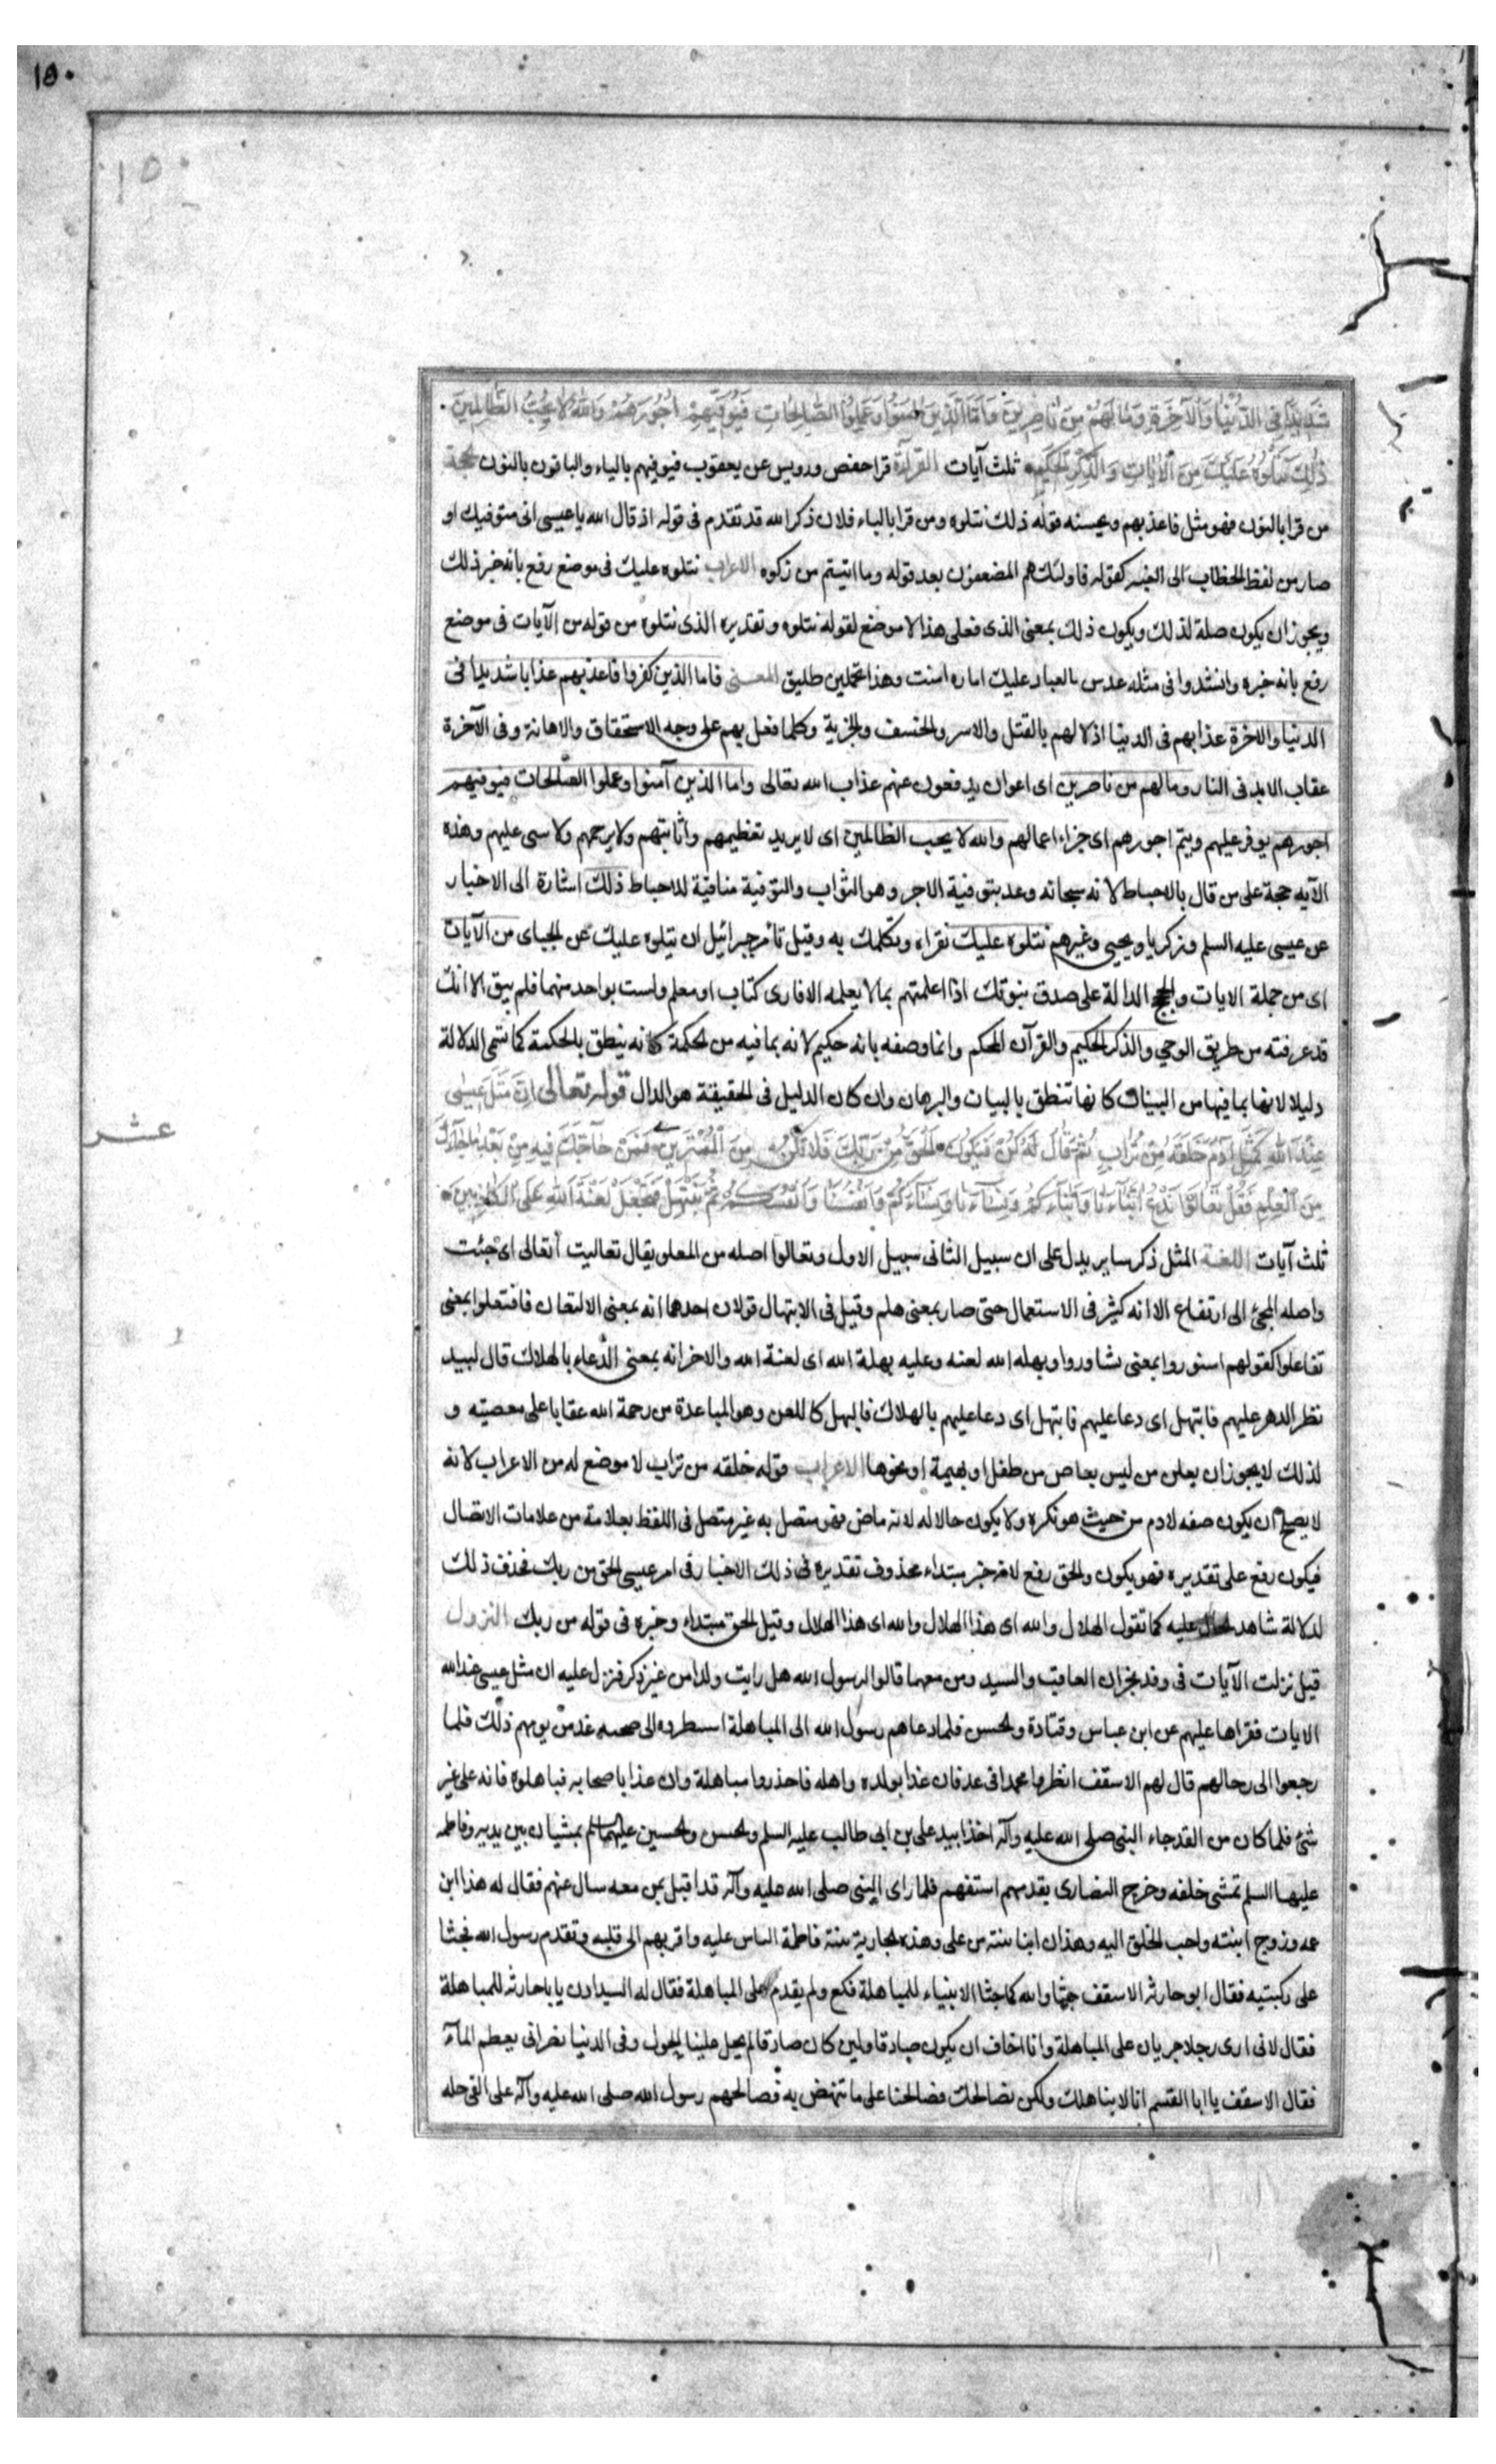 ١٥٠
١٥٠
شَدِيدًا فِي الدُّنْيَا وَالْآخِرَةِ وَمَا لَهُمْ مِنْ نَاصِرِينَ وَأَمَّا الَّذِينَ آمَنُوا وَعَمِلُوا الصَّالِحَاتِ فَيُوَفِّيهِمْ أُجُورَهُمْ وَاللَّهُ لَا يُحِبُّ الظَّالِمِينَ
ذَلِكَ نَتْلُوهُ عَلَيْكَ مِنَ الْآيَاتِ وَالذِّكْرِ الْحَكِيمِ ثلث آيات القرآءة قرا حفص ورويس عن يعقوب فيوفيهم بالياء والباقون بالنون الحجة
من قرا بالنون فهو مثل فاعذبهم ويحسنه قوله ذلك نتلوه ومن قرا بالياء فلان ذكر الله قد تقدم فى قوله اذ قال الله يا عيسى انى متوفيك او
صار من لفظ الخطاب الى الغيبه كقوله فاولئك هم المضعفون بعد قوله وما اتيتم من زكوه الاعراب نتلوه عليك فى موضع رفع بانه خبر ذلك
ويجوز ان يكون صلة لذلك ويكون ذلك بمعنى الذى فعلى هذا لا موضع لقوله نتلوه وتقديره الذى نتلوه من قوله من الآيات فى موضع
رفع بانه خبره وانشدوا فى مثله عدس ما لعباد عليك اماره امنت وهذا تحملين طليق المعنى فاما الذين كفروا فاعذبهم عذابا شديدا فى
الدنيا والاخرة عذابهم فى الدنيا اذلالهم بالقتل والاسر والخسف والجزية وكلما فعل بهم على وجه الاستحقاق والاهانة وفى الآخرة
عقاب الابد فى النار وما لهم من ناصرين اى اعوان يدفعون عنهم عذاب الله تعالى واما الذين آمنوا وعملوا الصّالحات فيوفيهم
اجورهم يوفر عليهم ويتم اجورهم اى جزاء اعمالهم والله لا يحب الظالمين اى لا يريد تعظيمهم واثابتهم ولا يرحمهم ولا عليهم وهذه
الآيه حجة على من قال بالاحباط لانه سبحانه وعد بتوفية الاجر وهو الثواب والتوفية منافية للاحباط ذلك اشارة الى الاخبار
عن عيسى عليه السلم وزكريا ويحيى وغيرهم نتلوه عليك نقراه ونكلمك به وقيل نأمر جبرائيل ان يتلوه عليك عن الجباى من الآيات
اى من جملة الايات والحجج الدالة على صدق نبوتك اذا اعلمتهم بما لا يعلمه الا قارى كتاب او معلم ولست بواحد منهما فلم يبق الا انك
قد عرفته من طريق الوحي والذكر الحكيم والقرآن المحكم وانما وصفه بانه حكيم لانه بما فيه من الحكمة كانه ينطق بالحكمة كما تسمى الدلالة
دليلا لانها بما فيها من البيان كانها تنطق بالبيان والبرهان وان كان الدليل فى الحقيقة هو الدال قوله تعالى إِنَّ مَثَلَ عِيسَى
عشر
عِنْدَ اللَّهِ كَمَثَلِ آدَمَ خَلَقَهُ مِنْ تُرَابٍ ثُمَّ قَالَ لَهُ كُنْ فَيَكُونُ الْحَقُّ مِنْ رَبِّكَ فَلَا تَكُنْ مِنَ الْمُمْتَرِينَ فَمَنْ حَاجَّكَ فِيهِ مِنْ بَعْدِ مَا جَاءَكَ
مِنَ الْعِلْمِ فَقُلْ تَعَالَوْا نَدْعُ أَبْنَاءَنَا وَأَبْنَاءَكُمْ وَنِسَاءَنَا وَنِسَاءَكُمْ وَأَنْفُسَنَا وَأَنْفُسَكُمْ ثُمَّ نَبْتَهِلْ فَنَجْعَلْ لَعْنَةَ اللَّهِ عَلَى الْكَاذِبِينَ
ثلث آيات اللغة المثل ذكر ساير يدل على ان سبيل الثانى سبيل الاول وتعالوا اصله من العلو يقال تعاليت اتعالى اى جئت
واصله المجئ الى ارتفاع الا انه كثر فى الاستعمال حتى صار بمعنى هلم وقيل فى الابتهال قولان احدهما انه بمعنى الالتعان فافتعلوا بمعنى
تفاعلوا كقولهم اشتوروا بمعنى تشاوروا وبهله الله لعنه وعليه بهلة الله اى لعنة الله والاخر انه بمعنى الدّعاء بالهلاك قال لبيد
نظر الدهر عليهم فابتهل اى دعا عليهم فابتهل اى دعا عليهم بالهلاك فالبهل كاللعن وهو المباعدة من رحمة الله عقابا على معصيته و
لذلك لا يجوز ان يعلن من ليس بعاص من طفل او بهيمة او نحوها الاعراب قوله خلقه من تراب لا موضع له من الاعراب لانه
لا يصح ان يكون صفه لادم من حيث هو نكره ولا يكون حالا له لانه ماض فهو متصل به غير متصل فى اللفظ بعلامة من علامات الاتصال
فيكون رفع على تقديره فهو يكون والحق رفع لانه خبر مبتداء محذوف تقديره ذلك الاخبار فى امر عيسى الحق من ربك فحذف ذلك
لدلالة شاهد الحال عليه كما تقول الهلال والله اى هذا الهلال والله اى هذا الهلال وقيل الحق مبتداء وخبره فى قوله من ربك النزول
قيل نزلت الآيات فى وفد نجران العاقب والسيد ومن معهما قالوا لرسول الله هل رايت ولدا من غير ذكر فنزل عليه ان مثل عيسى عند الله
الايات فقراها عليهم عن ابن عباس وقتادة والحسن فلما دعاهم رسول الله الى المباهلة الى غد من يومهم ذلك فلما
رجعوا الى رحالهم قال لهم الاسقف انظروا محمدا فى غد فان غدا بولده واهله فاحذروا مباهلة وان غدا باصحابه فباهلوه فانه على غير
شئ فلما كان من الغد جاء النبى صلى الله عليه وآله اخذا بيد على بن ابى طالب عليه السلم والحسن والحسين عليهما السلم يمشيان بين يديه وفاطمه
عليها السلم تمشى خلفه وخرج النصارى يقدمهم اسقفهم فلما راى النبى صلى الله عليه وآله قد اقبل بمن معه سال عنهم فقال له هذا ابن
عمه وزوج ابنته واحب الخلق اليه وهذان ابنا بنته من على وهذه الجارية بنته فاطمة الناس عليه واقربهم الى قلبه وتقدم رسول الله فجثا
على ركبتيه فقال ابو حارثه الاسقف جثا والله كما جثا الانبياء للمباهلة فكع ولم يقدم على المباهلة فقال له السيد ادن يا باحارثه للمباهلة
فقال لانى ارى رجلا جريان على المباهلة وانا اخاف ان يكون صادقا ولين كان صادقا لم يحل علينا الحول وفى الدنيا نصرانى يعطم المآء
فقال الاسقف يا ابا القسم انا لا نباهلك ولكن نصالحك فصالحنا على ما ننهض به فصالحهم رسول الله صلى الله عليه وآله على الفى حله